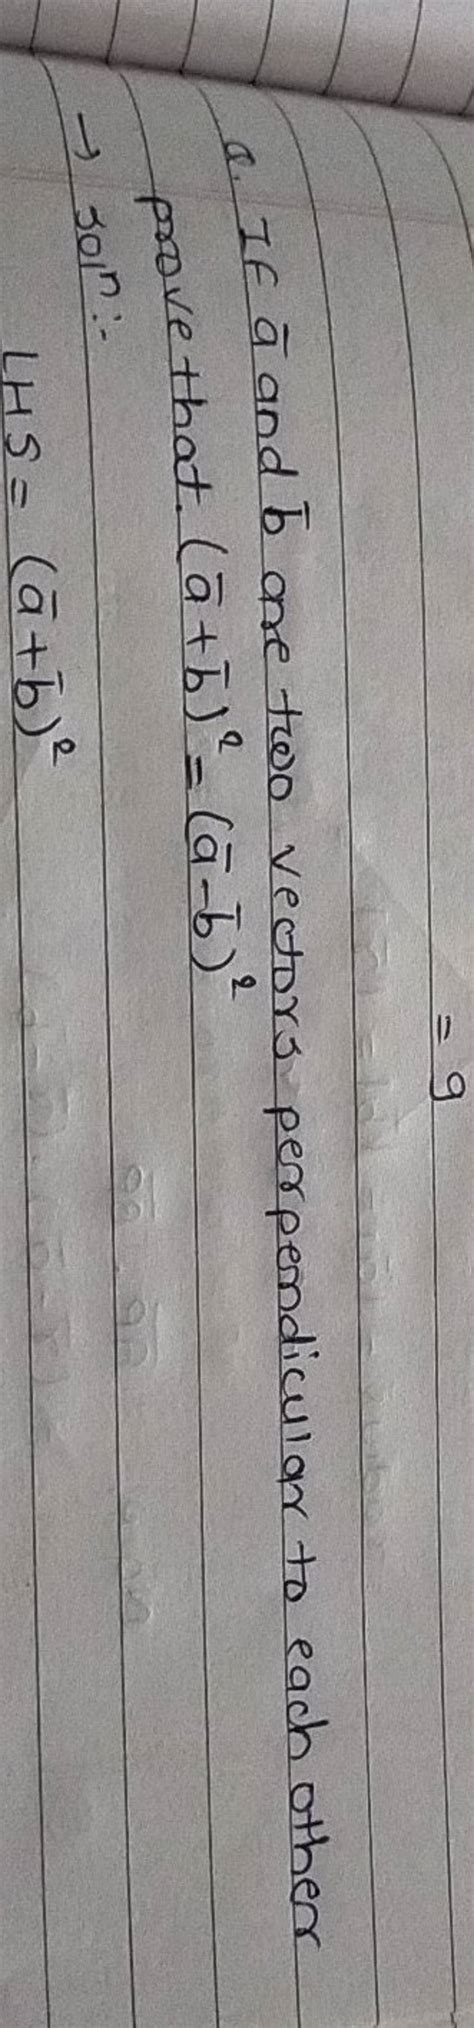 = 9
Q. If ā and b̄ are two vectors perpendicular to each other
prove that. (ā + b̄)² = (ā - b̄)²
→ Solⁿ :-
LHS = (ā + b̄)²